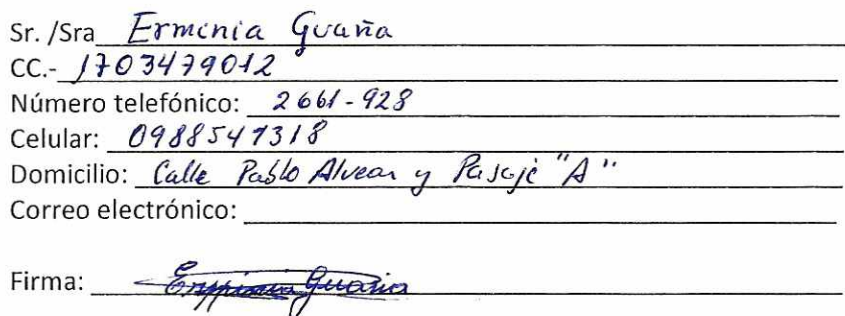 Sr. /Sra Erminia Guaña
CC.- 1703479012
Número telefónico: 2661-928
Celular: 0988547318
Domicilio: Calle Pablo Alvear y Pasaje "A"
Correo electrónico:
Firma: Erminia Guaña